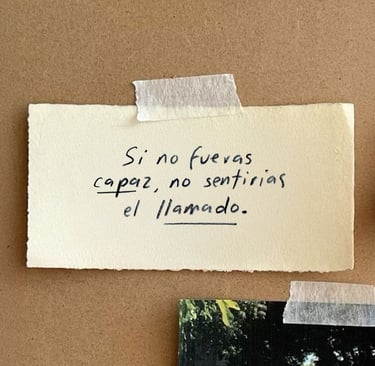 Si no fueras
capaz, no sentirias
el llamado.